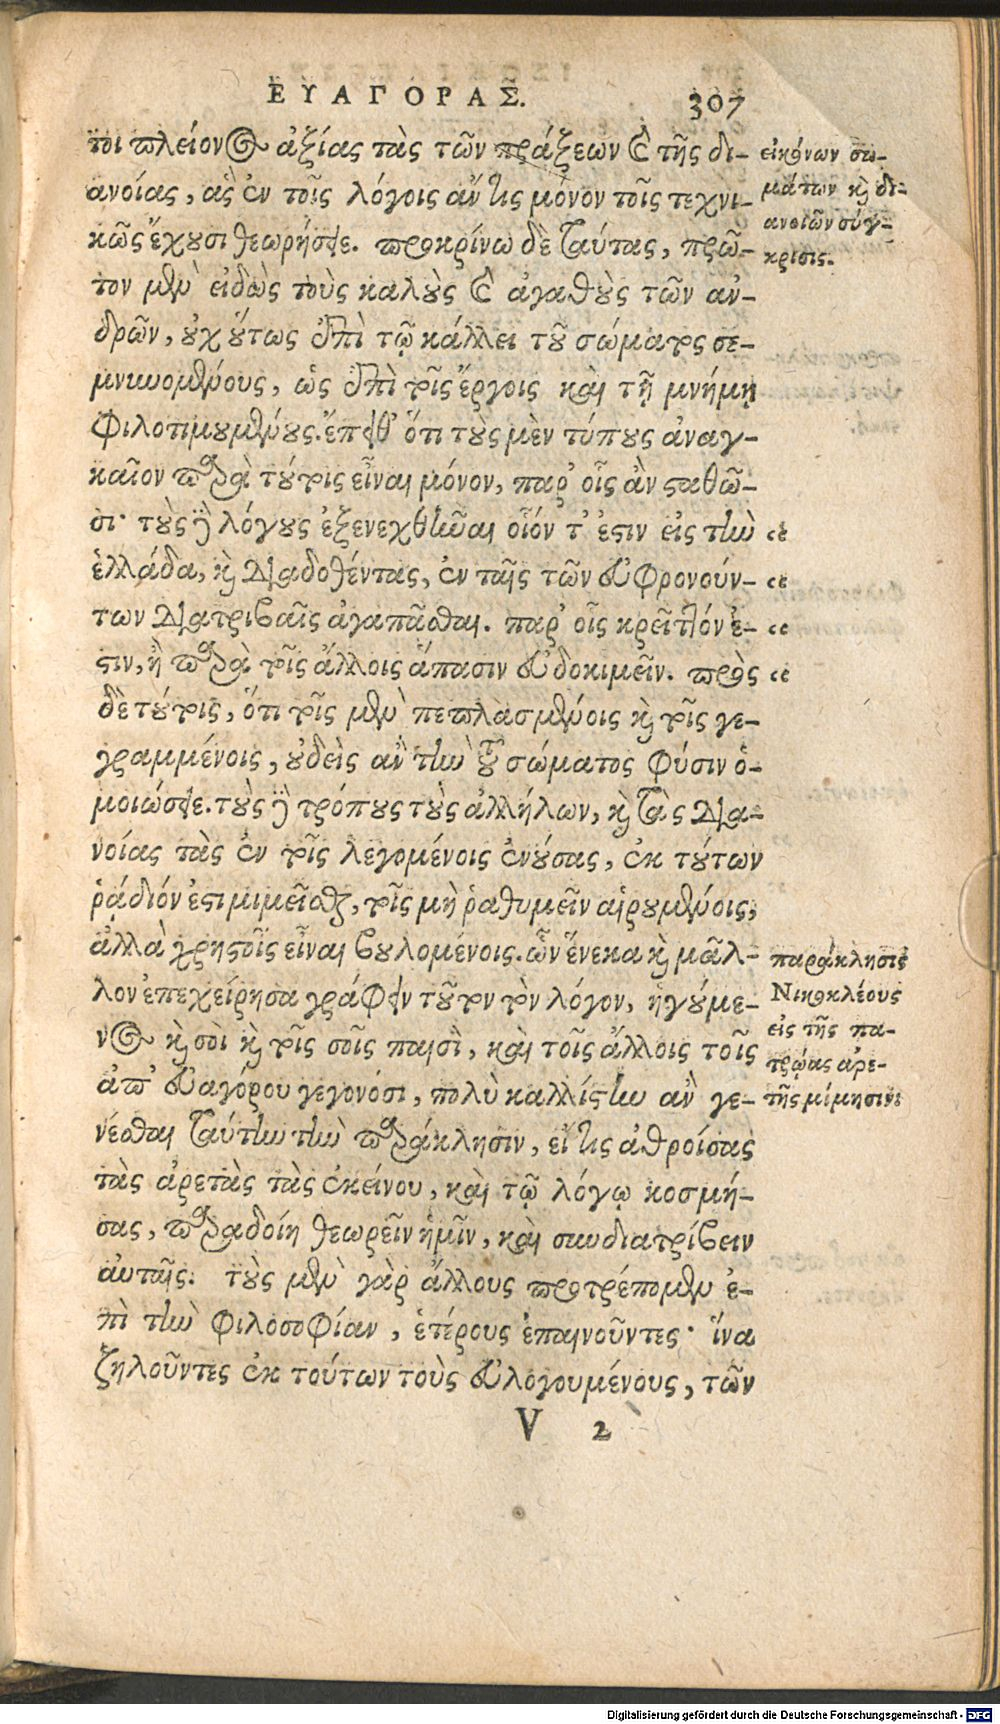 ΕΥΑΓΟΡΑΣ. 307
τοι πλείονος ἀξίας τὰς τῶν πράξεων καὶ τῆς δι-
ανοίας, ἃς ἐν τοῖς λόγοις ἄν τις μόνον τοῖς τεχνι-
κῶς ἔχουσι θεωρήσειε. προκρίνω δὲ ταύτας, πρῶ-
τον μὲν εἰδὼς τοὺς καλοὺς καὶ ἀγαθοὺς τῶν ἀν-
δρῶν, οὐχ οὕτως ἐπὶ τῷ κάλλει τοῦ σώματος σε-
μνυνομένους, ὡς ἐπὶ τοῖς ἔργοις καὶ τῇ μνήμῃ
φιλοτιμουμένους. ἔπειθ' ὅτι τοὺς μὲν τύπους ἀναγ-
καῖον παρὰ τούτοις εἶναι μόνον, παρ' οἷς ἂν σταθῶ-
σι· τοὺς δὲ λόγους ἐξενεχθῆναι οἷόν τ' ἐστιν εἰς τὴν "
ἑλλάδα, καὶ διαδοθέντας, ἐν ταῖς τῶν εὐφρονούν- "
των διατριβαῖς ἀγαπᾶσθαι. παρ' οἷς κρεῖττόν ἐ- "
στιν, ἢ παρὰ τοῖς ἄλλοις ἅπασιν εὐδοκιμεῖν. πρὸς "
δὲ τούτοις, ὅτι τοῖς μὲν πεπλασμένοις καὶ τοῖς γε-
γραμμένοις, οὐδεὶς ἂν τὴν τοῦ σώματος φύσιν ὁ-
μοιώσειε. τοὺς δὲ τρόπους τοὺς ἀλλήλων, καὶ τὰς δια-
νοίας τὰς ἐν τοῖς λεγομένοις ἐνούσας, ἐκ τούτων
ῥᾴδιόν ἐστι μιμεῖσθαι, τοῖς μὴ ῥαθυμεῖν αἱρουμένοις,
ἀλλὰ χρηστοῖς εἶναι βουλομένοις. ὧν ἕνεκα καὶ μᾶλ-
λον ἐπεχείρησα γράφειν τοῦτον τὸν λόγον, ἡγούμε-
νος καὶ σοὶ καὶ τοῖς σοῖς παισὶ, καὶ τοῖς ἄλλοις τοῖς
ἀπ' εὐαγόρου γεγονόσι, πολὺ καλλίστην ἂν γε-
νέσθαι ταύτην τὴν παράκλησιν, εἴ τις ἀθροίσας
τὰς ἀρετὰς τὰς ἐκείνου, καὶ τῷ λόγῳ κοσμή-
σας, παραδοίη θεωρεῖν ἡμῖν, καὶ συνδιατρίβειν
αὐταῖς. τοὺς μὲν γὰρ ἄλλους προτρέπομεν ἐ-
πὶ τὴν φιλοσοφίαν, ἑτέρους ἐπαινοῦντες· ἵνα
ζηλοῦντες ἐκ τούτων τοὺς εὐλογουμένους, τῶν
V 2
εἰκόνων σω-
μάτων καὶ δι-
ανοιῶν σύγ-
κρισις.
παράκλησις
Νικοκλέους
εἰς τῆς πα-
τρῴας ἀρε-
τῆς μίμησιν
Digitalisierung gefördert durch die Deutsche Forschungsgemeinschaft - DFG